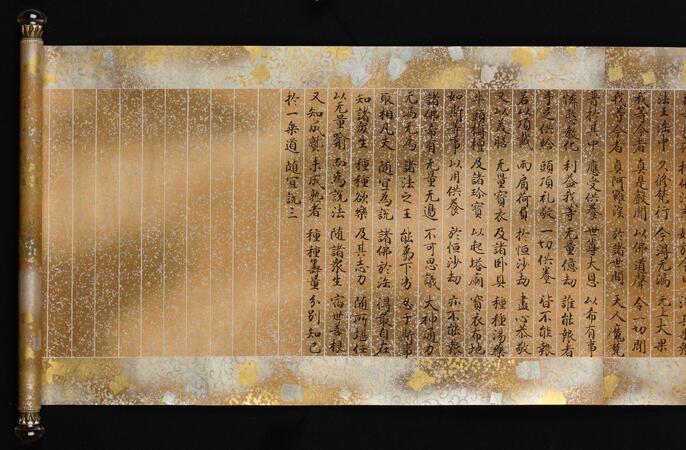 法王法中 久修梵行 今得无漏 无上大果
我等今者 真是聲聞 以佛道聲 令一切聞
我等今者 真阿羅漢 於諸世間 天人魔梵
普於其中 應受供養 世尊大恩 以希有事
憐愍教化 利益我等 无量億劫 誰能報者
手足供給 頭頂礼敬 一切供養 皆不能報
若以頂戴 兩肩荷負 於恒沙劫 盡心恭敬
又以美膳 无量寶衣 及諸卧具 種種湯藥
牛頭栴檀 及諸珍寶 以起塔廟 寶衣布地
如斯等事 以用供養 於恒沙劫 亦不能報
諸佛希有 无量无邊 不可思議 大神通力
无漏无為 諸法之王 能為下劣 忍于斯事
取相凡夫 随宜為說 諸佛於法 得最自在
知諸衆生 種種欲樂 及其志力 随所堪任
以无量喻 而為說法 随諸衆生 宿世善根
又知成熟 未成熟者 種種籌量 分別知已
於一乗道 随宜說三